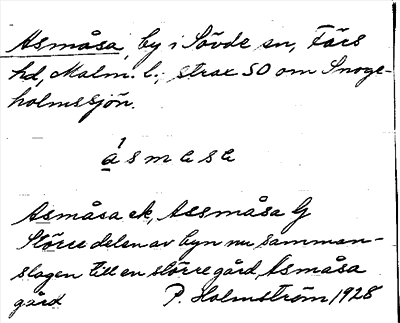 Asmåsa, by i Sövde sn, Färs
hd, Malm. l., strax SO om Snoge-
holmssjön.
ásmasa
Asmåsa ek, Assmåsa G
Större delen av byn nu samman-
slagen till en större gård, Asmåsa
gård P. Holmström 1928